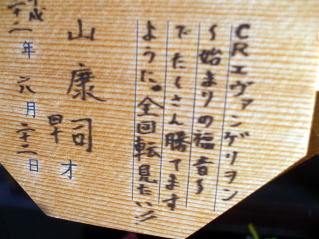 CRエヴァンゲリヲン
〜始まりの福音〜
でたくさん勝てます
ように。全回転見たい!!
山康司 才
平成 年 六月 二日